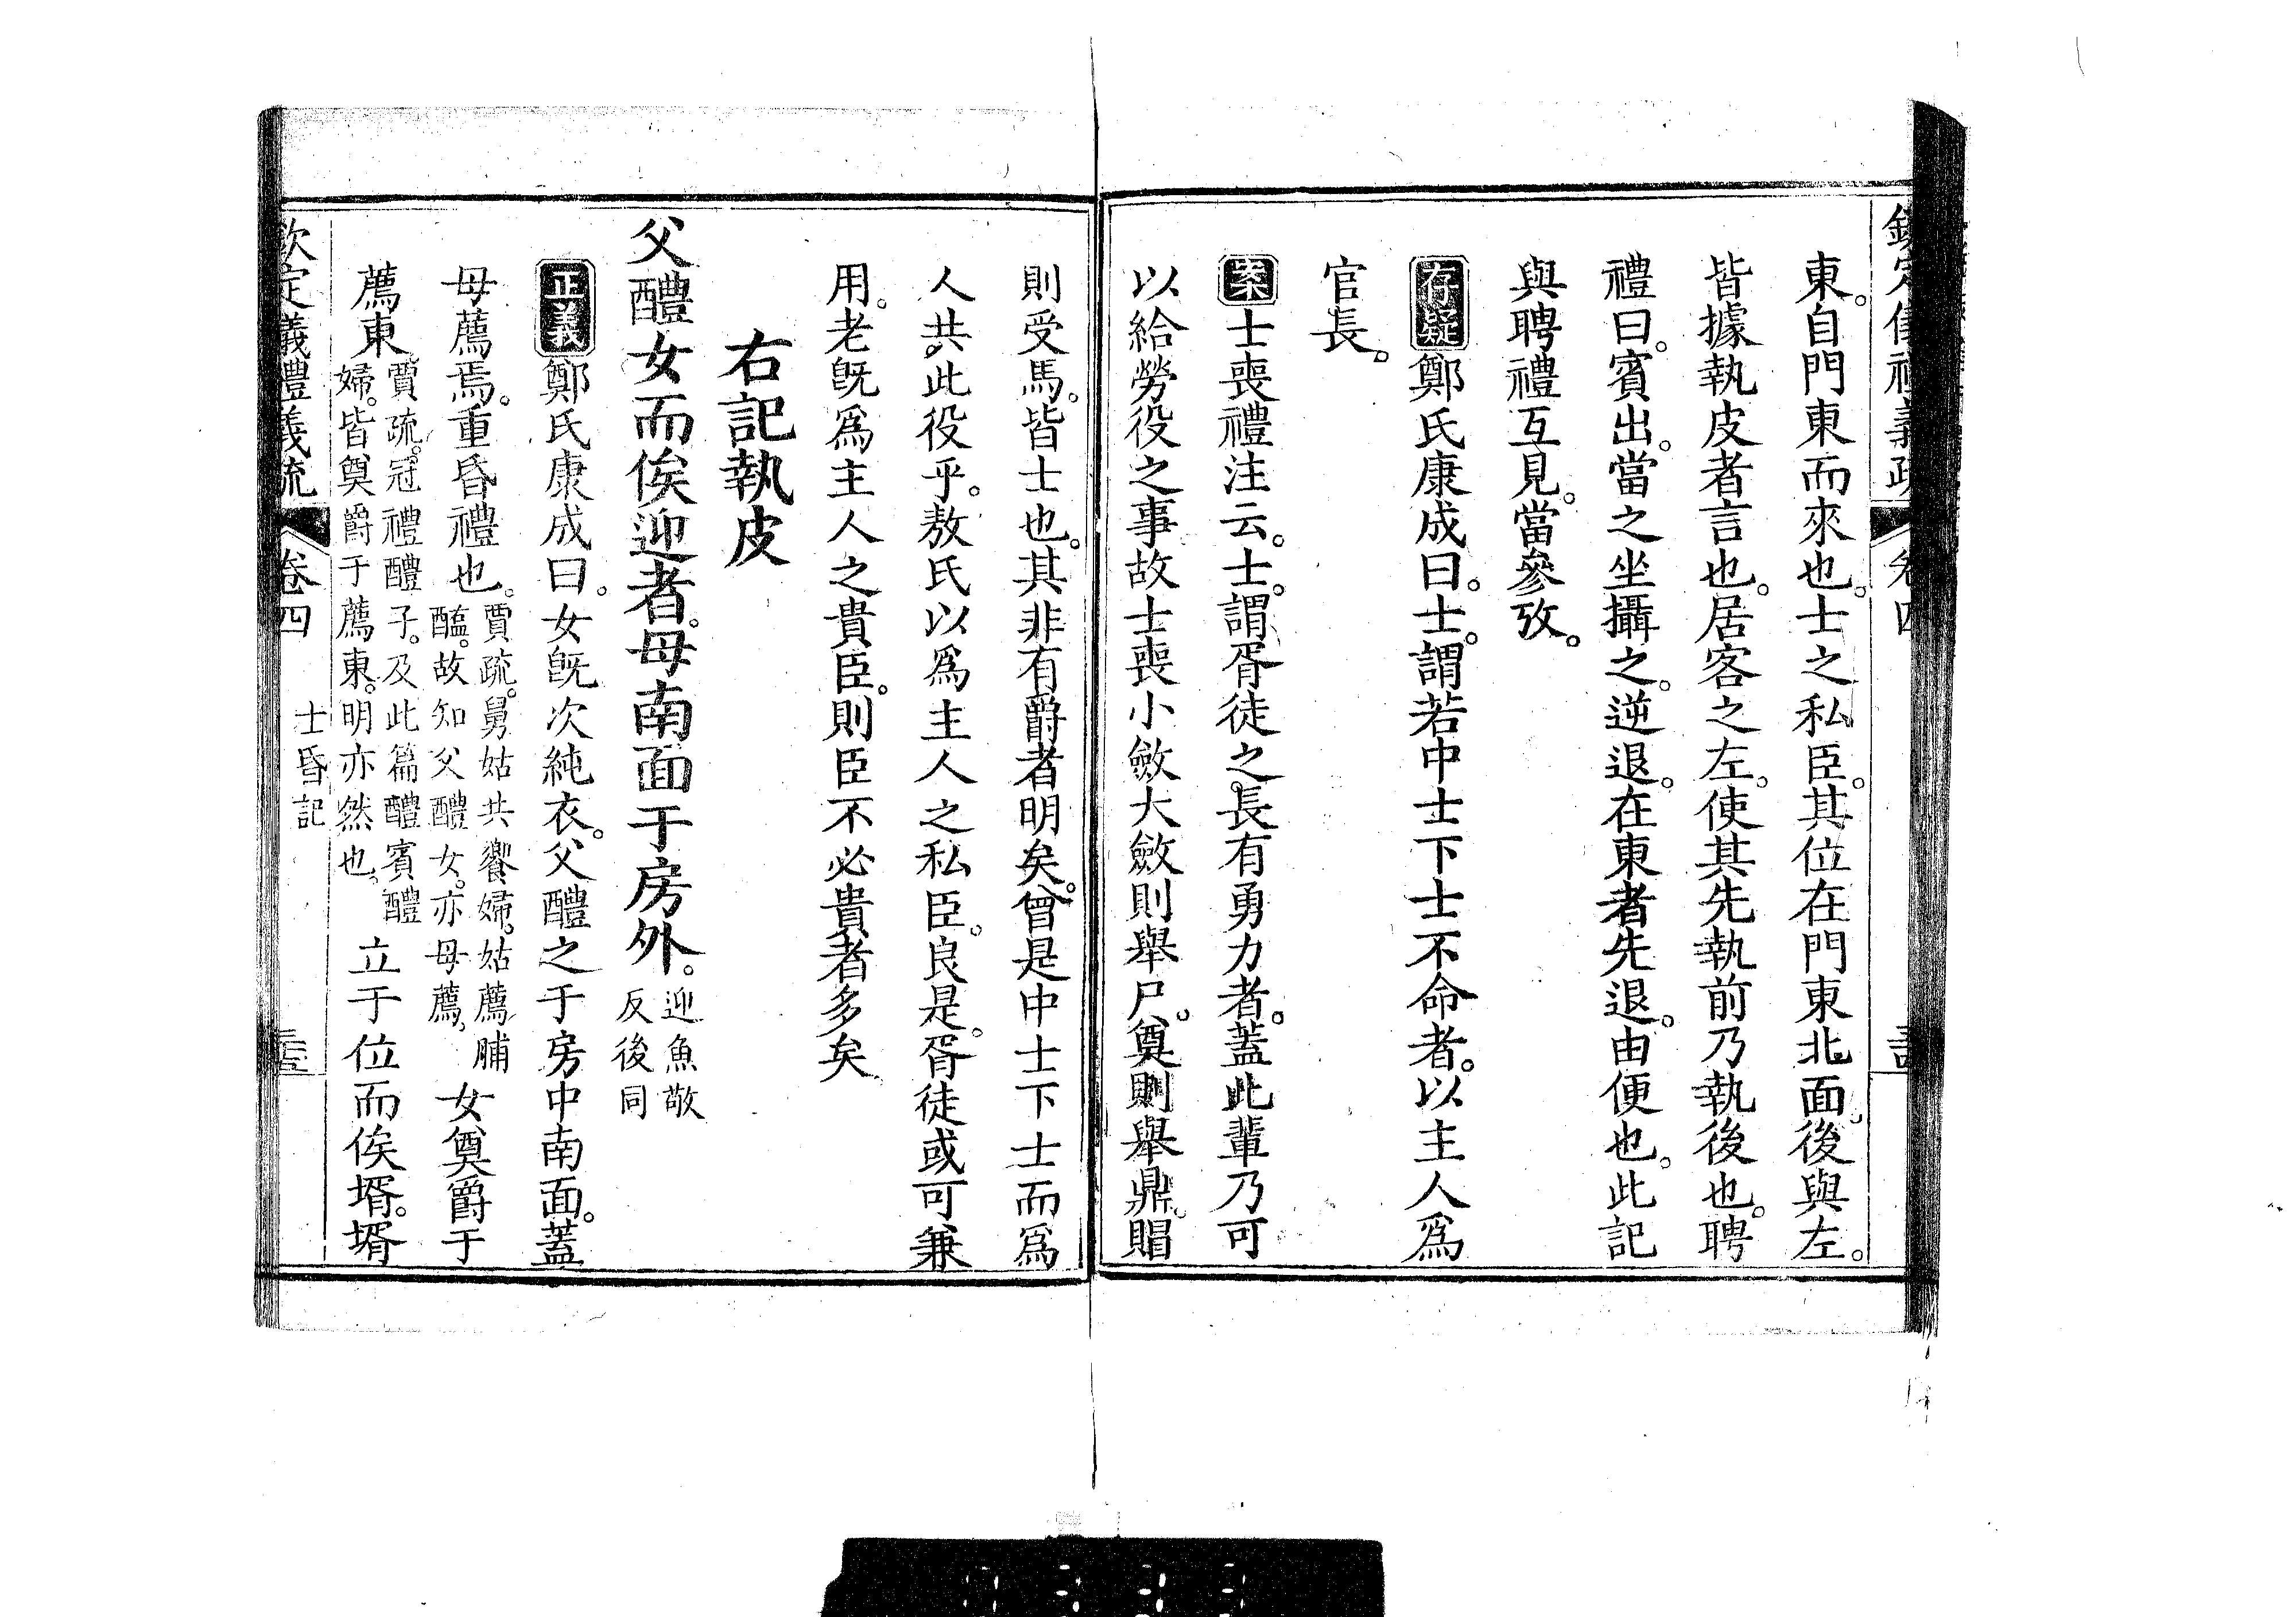 東。自門東而來也。士之私臣。其位在門東北面。後與左。
皆據執皮者言也。居客之左。使其先執前乃執後也。聘
禮曰。賓出。當之坐攝之。逆退。在東者先退。由便也。此記
與聘禮互見。當參攷。
存疑鄭氏康成曰。士。謂若中士下士不命者。以主人爲
官長。
案士喪禮注云。士。謂胥徒之長有勇力者。蓋此輩乃可
以給勞役之事故士喪小斂大斂則舉尸。奠則舉鼎。賵
則受馬。皆士也。其非有爵者明矣。曾是中士下士而爲
人共此役乎。敖氏以爲主人之私臣。良是。胥徒或可兼
用。老旣爲主人之貴臣。則臣不必貴者多矣
右記執皮
父醴女而俟迎者。母南面于房外。迎魚敬
反後同
正義鄭氏康成曰。女旣次純衣。父醴之于房中南面。蓋
母薦焉。重昏禮也。賈疏。舅姑共饗婦。姑薦脯
醢。故知父醴女。亦母薦。女奠爵于
薦東。賈疏。冠禮醴子。及此篇醴賓醴
婦。皆奠爵于薦東。明亦然也。立于位而俟壻。壻
欽定儀禮義疏 卷四 士昏記